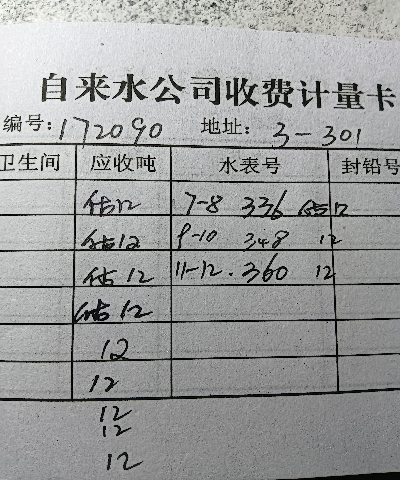 自来水公司收费计量卡
编号:172090 地址: 3-301
卫生间 应收吨 水表号 封铅号
估12 7-8 336 估12
估12 9-10 348 12
估12 11-12. 360 12
估12
12
12
12
12
12